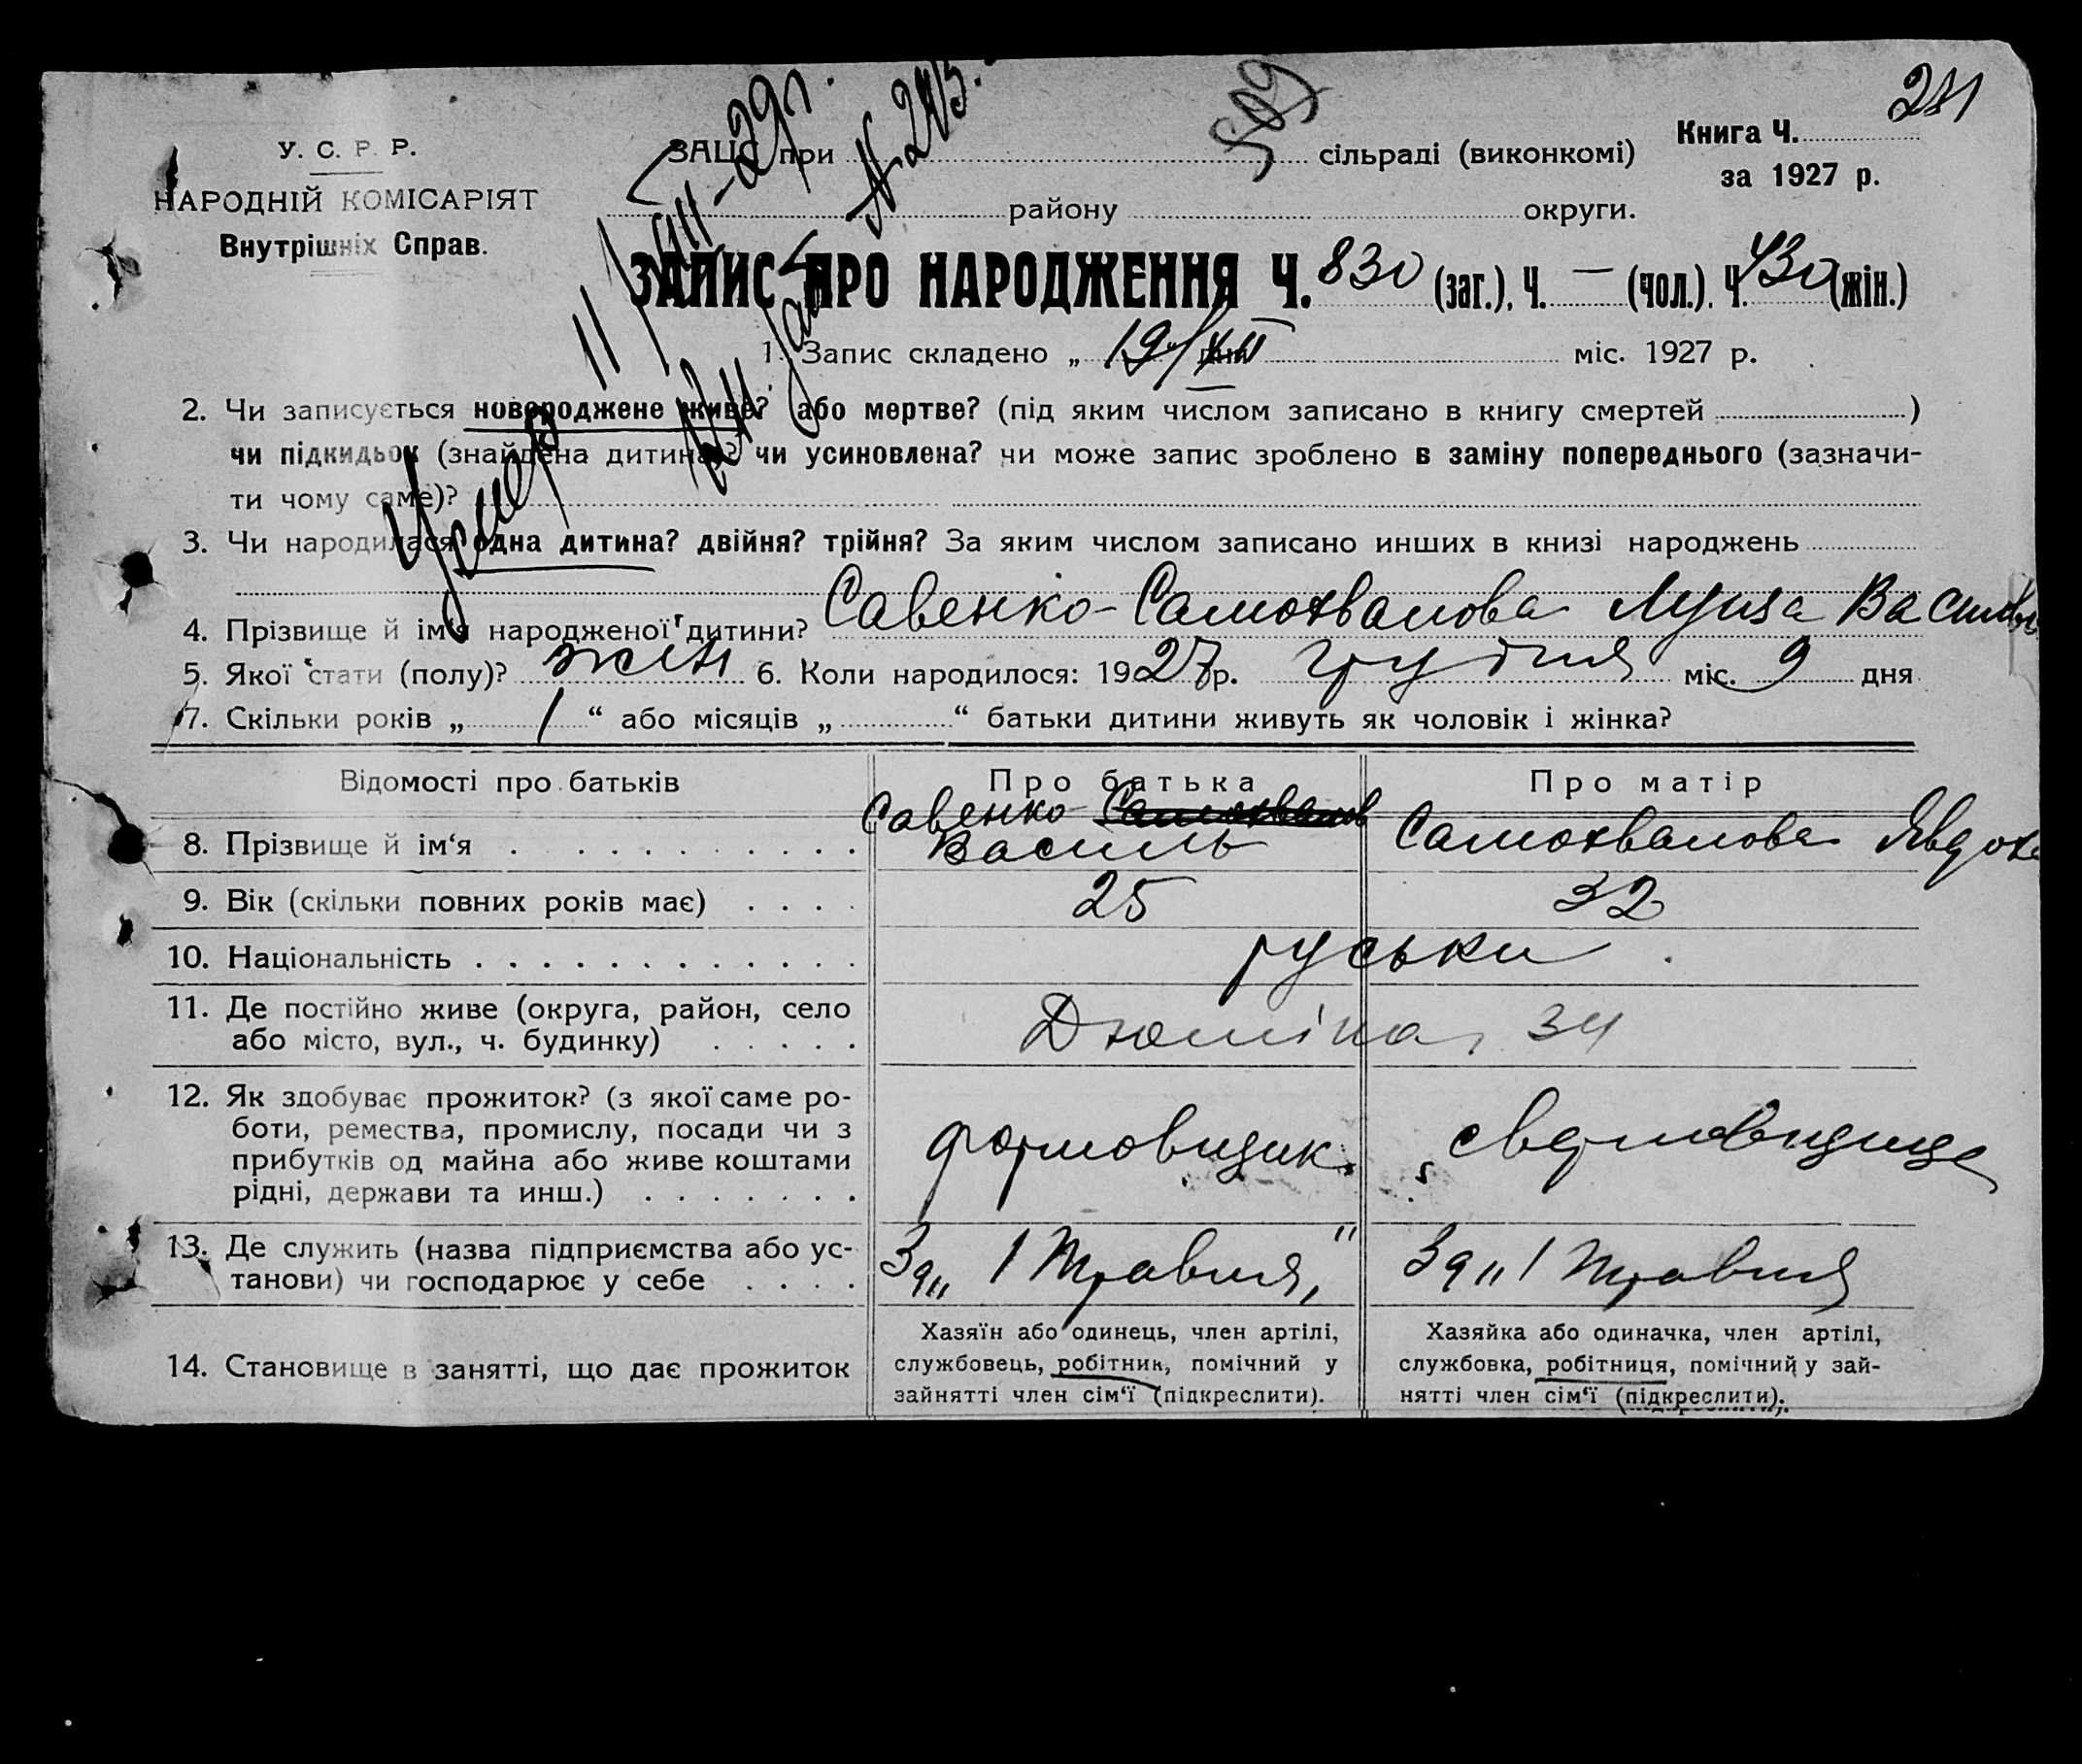 281
509
N 2415.
У. С. Р. Р.
НАРОДНІЙ КОМІСАРІЯТ
Внутрішніх Справ.
ЗАЦС при сільраді (виконкомі)
району округи.
Книга Ч.
за 1927 р.
ЗАПИС ПРО НАРОДЖЕННЯ Ч. 830 (заг.), Ч. — (чол.). Ч. 430 (жін.)
1. Запис складено „ 19/XII дня міс. 1927 р.
2. Чи записується новороджене живе? або мертве? (під яким числом записано в книгу смертей )
чи підкидьок (знайдена дитина)? чи усиновлена? чи може запис зроблено в заміну попереднього (зазначи-
ти чому саме)?
3. Чи народилася одна дитина? двійня? трійня? За яким числом записано инших в книзі народжень
Умер
4. Прізвище й ім'я народженої дитини? Савенко-Самохвалова Луиза
5. Якої стати (полу)? жін 6. Коли народилося: 1927 р. грудня міс. 9 дня
7. Скільки років „ 1 “ або місяців „ “ батьки дитини живуть як чоловік і жінка?
Відомості про батьків Про батька Про матір
8. Прізвище й ім‘я Савенко Самохвалов Василь Самохвалова Явдоха
9. Вік (скільки повних років має) 25 32
10. Національність руськи
11. Де постійно живе (округа, район, село
або місто, вул., ч. будинку) 34
12. Як здобуває прожиток? (з якої саме ро-
боти, ремества, промислу, посади чи з
прибутків од майна або живе коштами
рідні, держави та инш.) формовщик.
13. Де служить (назва підприємства або ус-
танови) чи господарює у себе Зд „1 Травня" Зд „1 Травня
14. Становище в занятті, що дає прожиток
Хазяїн або одинець, член артілі,
службовець, робітник, помічний у
зайнятті член сім‘ї (підкреслити).
Хазяйка або одиначка, член артілі,
службовка, робітниця, помічний у зай-
нятті член сім‘ї (підкреслити).